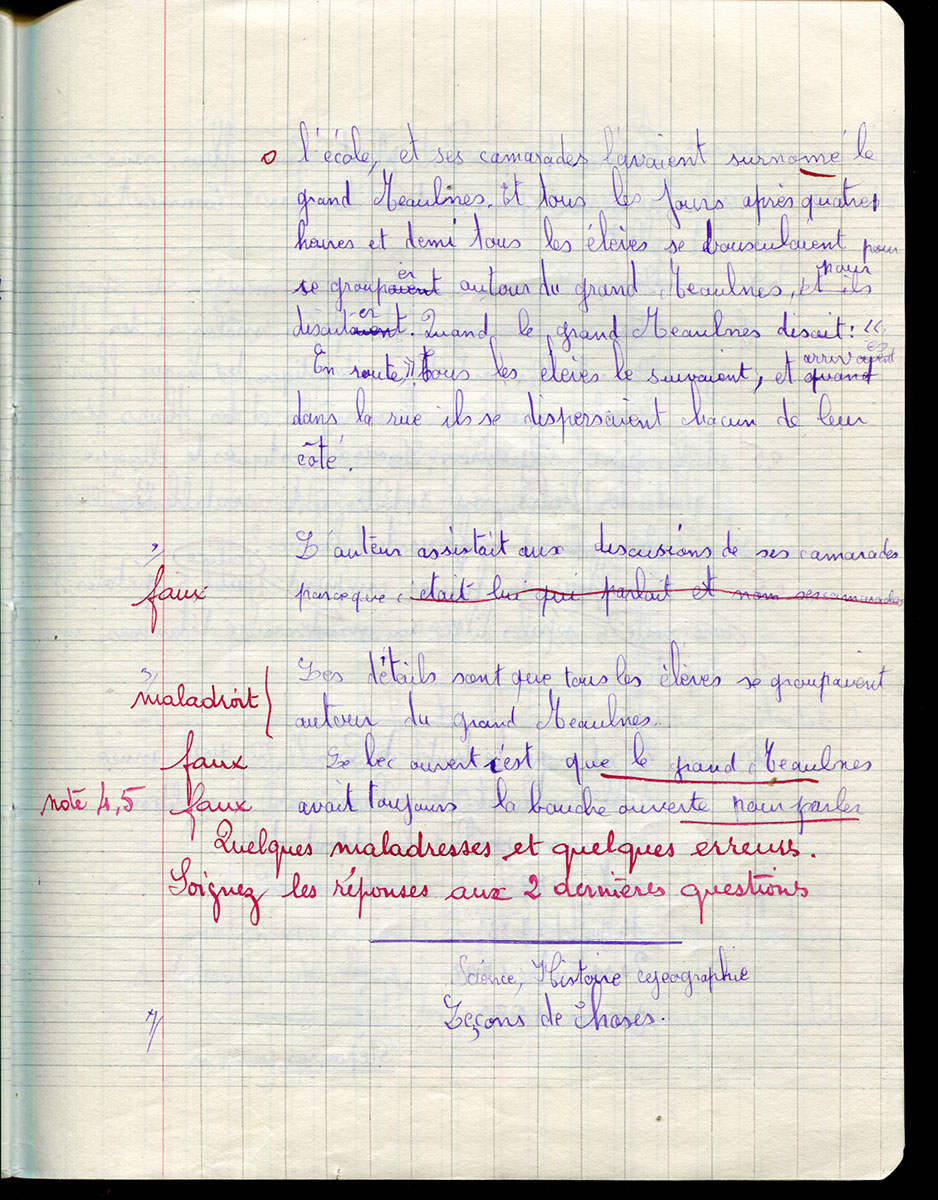 o l'école, et ses camarades l'avaient surnomé le
grand Meaulnes. Et tous les jours après quatre
heures et demi tous les élèves se bousculaient pour
se groupaient er autour du grand Meaulnes, et pour ils
discutaient er. Quand le grand Meaulnes disait : «
En route » Tous les élèves le suivaient, et quand arrivaient
dans la rue ils se dispersaient chacun de leur
côté.
2/ L'auteur assistait aux discusions de ses camarades
faux parceque c'était lui qui parlait et nom ses camarades
3/ Les détails sont que tous les élèves se groupaient
maladroit
autour du grand Meaulnes.
faux Le bec ouvert c'est que le grand Meaulnes
note 4,5 faux avait toujours la bouche ouverte pour parler
Quelques maladresses et quelques erreurs.
Soignez les réponses aux 2 dernières questions
Science, Histoire
4/ Leçons de Choses.